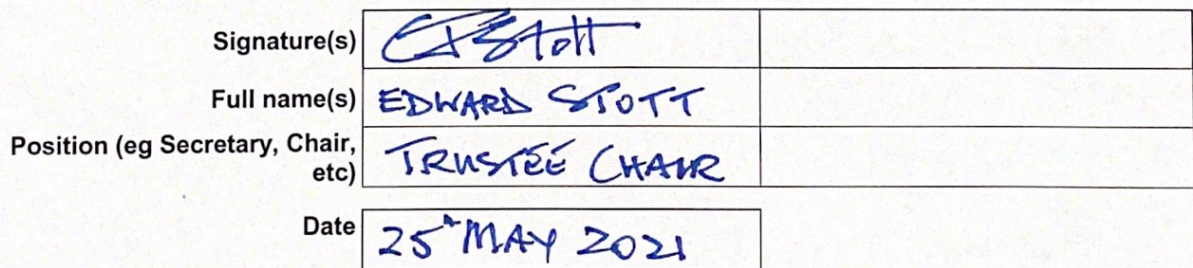 Signature(s) EPStott
Full name(s) EDWARD STOTT
Position (eg Secretary, Chair, etc) TRUSTEE CHAIR
Date 25th MAY 2021